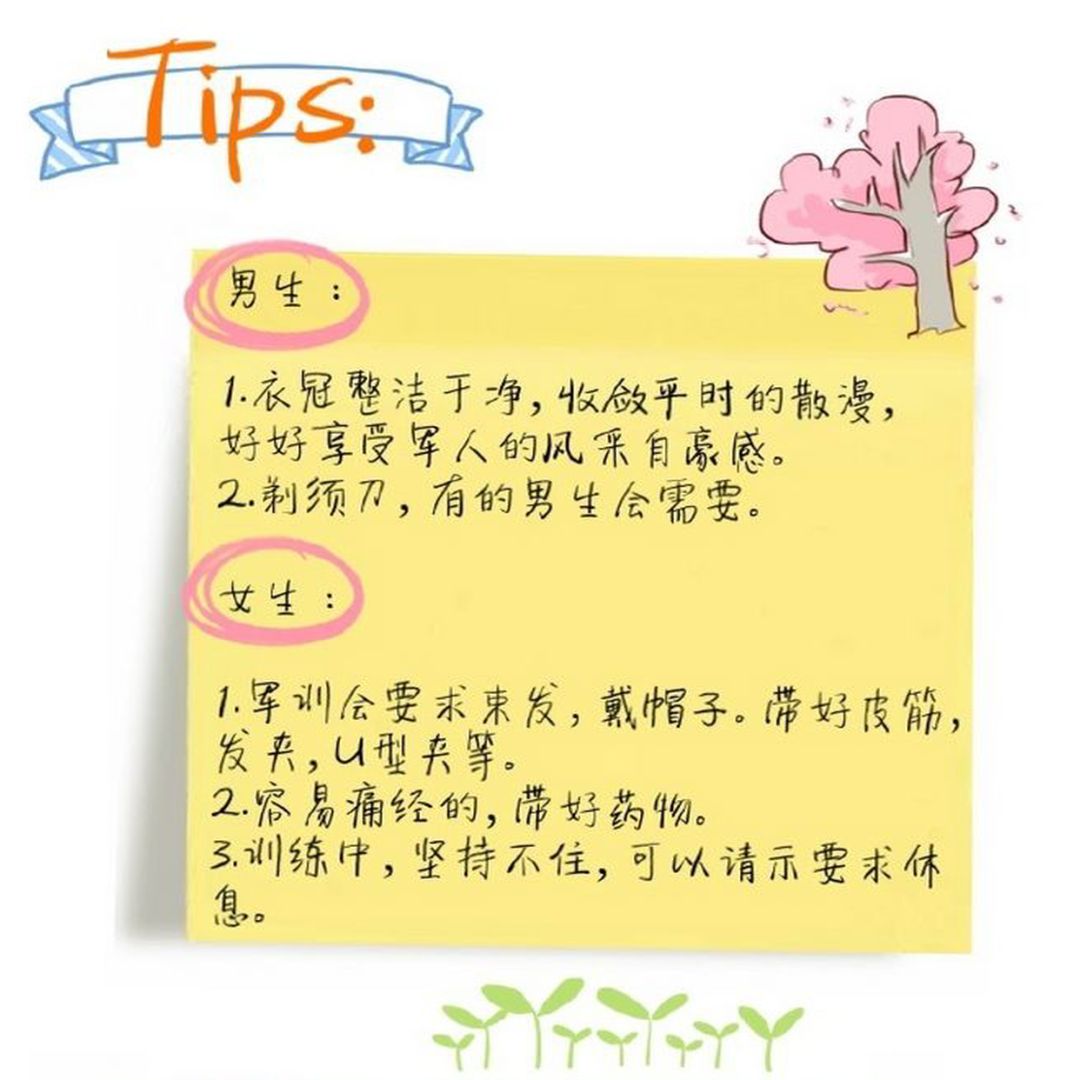 Tips:
男生：
1.衣冠整洁干净,收敛平时的散漫,
好好享受军人的风采自豪感。
2.剃须刀,有的男生会需要。
女生：
1.军训会要求束发,戴帽子。带好皮筋,
发夹,U型夹等。
2.容易痛经的,带好药物。
3.训练中,坚持不住,可以请示要求休
息。